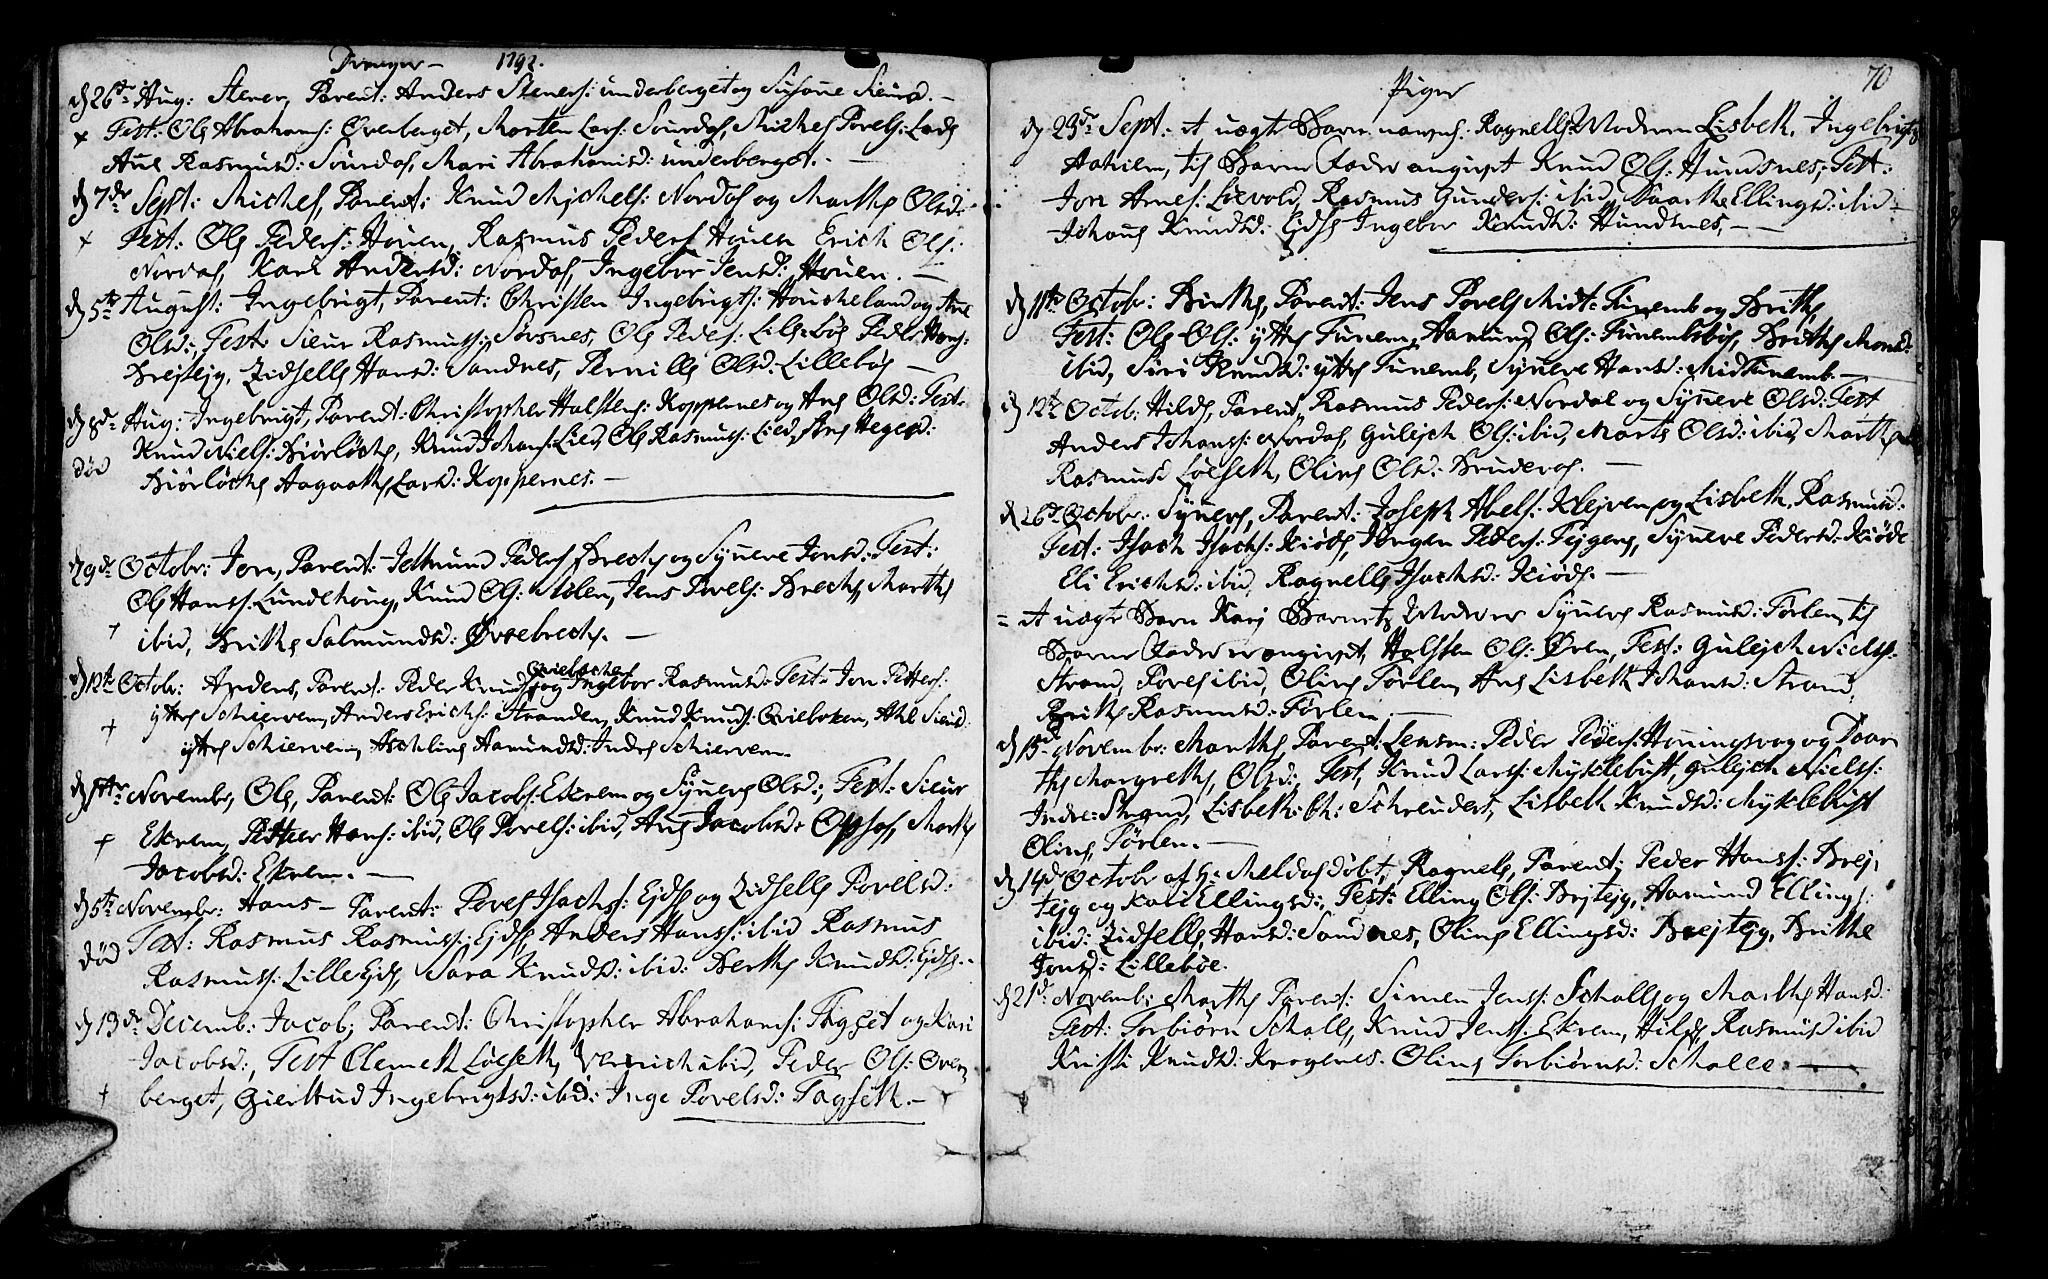 Drenger – 1792.
d 26de Aug: Stener, Parent: Anders Steners: underberget og Susane Siurd. –
+ Test: Ole Abrahams: Øverberget, Morten Lars: Sourdal, Michel Povels: Lade
Ane Rasmusd: Sourdal, Mari Abrahamsd: underberget. –
d 7de Sept: Michel, Parent: Knud Michels: Nordal og Marthe Olsd:
+ Test: Ole Peders: Houen, Rasmus Peders Houen Erich Ols:
Nordal, Kari Andersd: Nordal, Ingebor Jensd: Houen. –
d 5te August: Ingebrigt, Parent: Christen Ingebrigts: Houcheland og Ane
Olsd:, Test: Siur Rasmuss: Sørsnes, Ole Peders: Lillebøe Peder Hans:
Brejtejg, Zidselle Hansd: Sandnes, Pernille Olsd: Lillebøe –
d 8de Aug: Ingebrigt, Parent: Christopher Halstens: Koppernes og Ane Olsd: Test:
Knud Niels: Biørløche, Knud Johans: Lied, Ole Rasmuss: Lied,
død Biørløche Aagaathe Larsd: Koppernes. –
d 29de Octobr: Jon, Parent: Jetmund Peders Breche og Synneve Jonsd: Test:
Ole Hanss: Lundehoug, Knud Ols: Stølen, Jens Povels: Breche, Marthe
+ ibid, Brithe Salmundsd: Øvrebreche. –
qvieløche
d 12te Octobr: Anders, Parent: Peder Knuds: og Ingebor Rasmusd: Test: Jon Petters:
ytre Schierven, Anders Erichs: Stranden, Knud Knuds: Qvieløken, Ane Siurd:
+ ytre Schierven, Aschline Aamundsd: Indre Schierven.
d 1ste Novembr, Ole, Parent: Ole Jacobs: Ekrem og Synneve Olsd:, Test: Siur
+ Ekrem, Petter Hans: ibid, Ole Povels: ibid, Ane Jacobsd: Opsal, Marthe
Jacobsd: Ekrem. –
d 5te Novembr: Hans – Parent: Povel Isachs: Ejde og Zidselle Povelsd:
død Test: Rasmus Rasmuss: Ejde, Anders Hanss: ibid Rasmus
Rasmuss: Lille Ejde, Sara Knudsd: ibid: Berthe Knudsd: Ejde. –
d 19de Decemb: Jacob, Parent: Christopher Abrahams: Tagset og Kari
Jacobsd:, Test Clemeth Løeseth, Verrich ibid, Peder Ols: Over
+ berget, Giertrud Ingebrigtsd: ibid: Inge Povelsd: Tagseth. –
70
Piger
d 23de Sept: et uægt Barn navnl: Ragnelle Moderen Lisbeth Ingebrigts
Aahilen, til Barne Fader angivet Knud Ols: Hundsnes, Test:
Jon Arnes: Løevold, Rasmus Gunders: ibid, Maarthe Ellingsd: ibid:
Johane Knudsd: Ejde Ingebor Knudsd: Hundsnes, – –
d 11te Octobr: Birthe, Parent: Jens Povels Midt-Furemb og Brithe,
Test: Ole Ols: ytre Furem, Aamund Ols: Furembsbøe, Brithe Monsd:
ibid, Siri Knudsd: ytre Furemb, Synneve Hansd: Midtfuremb. –
d 12te Octob: Hilde, Parent, Rasmus Peders: Nordal og Synneve Olsd: Test
Anders Johanss: Nordal, Gulejch Ols: ibid, Marte Olsd: ibid, Marthe
Rasmusd Løeseth, Oline Olsd: Bruderol. –
d 26de Octobr: Synneve, Parent: Joseph Abels: Klejven og Lisbeth Rasmusd:
Test: Isach Isachs: Kiøde, Jørgen Peders: Tejgene, Synneve Pedersd: Kiøde
Eli Erichsd: ibid, Ragnelle Isachsd: Kiøde. –
= et uægte Barn Kari Barnets Moder er Synneve Rasmusd: Førlem, til
Barne Fader er angivet, Halsten Ols: Øren, Test: Gulejch Niels:
Strand, Povel ibid, Oline Førlem, Ane Lisbeth Johansd: Strand,
Brithe Rasmusd: Førlem. –
d 15de Novembr: Marthe, Parent: Lensm: Peder Peders: Honingsvog og Doar
the Margrethe, Olsd:, Test, Knud Lars: Myklebust, Gulejch Niels:
Indre-Strand, Lisbeth Ch: Schreuders, Lisbeth Knudsd: Myklebust
Oline Førlem. –
d 14de Octobr af H: Meldal døbt, Ragnele, Parent: Peder Hanss: Brej
tejg og Kari Ellingsd:, Test: Elling Ols: Brjtejg, Aamund Ellings:
ibid: Zidselle Hansd: Sandnes, Oline Ellingsd: Brejtejg, Brithe
Jonsd: Lillebøe.
d 21de Novemb: Marthe Parent: Simen Jens: Scholle og Marthe Hansd:
Test: Torbiørn Scholle, Knud Jens: Ekrem, Hilde Rasmusd ibid
Kristi Knudsd: Krogenes. Oline Torbiørnsd: Scholle. –